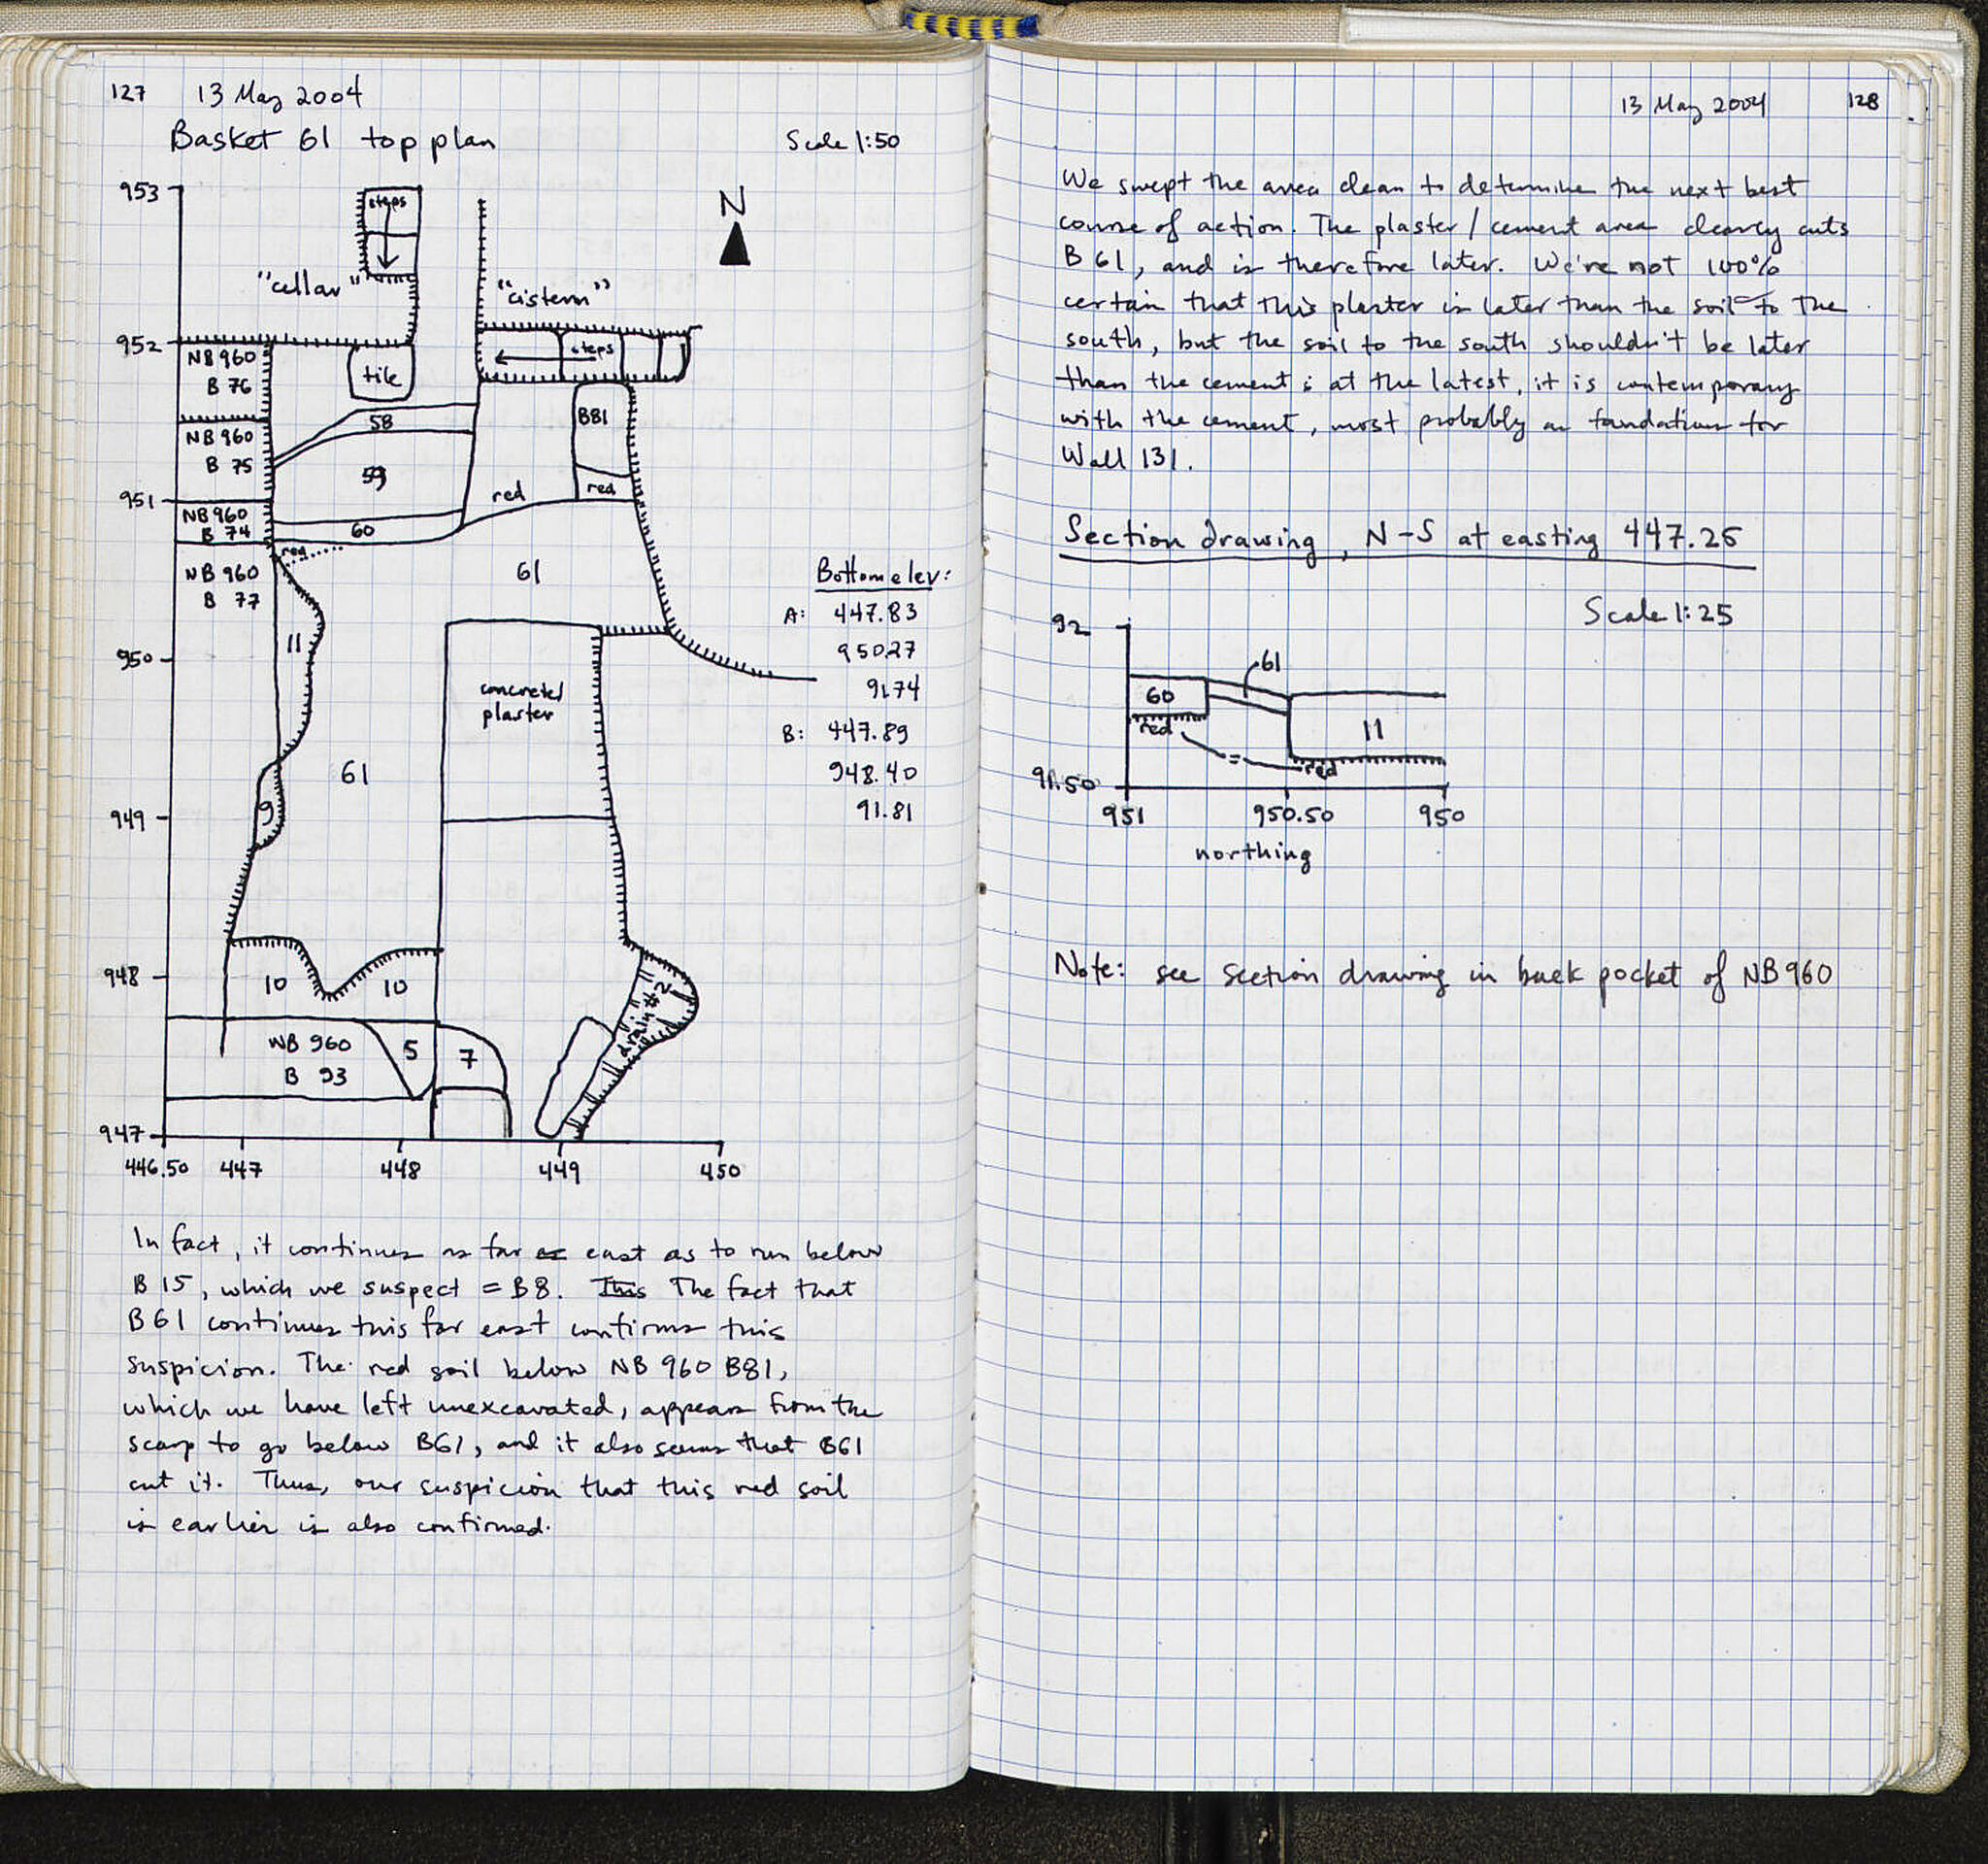 127 13 May 2004
Basket 61 top plan Scale 1:50
953
steps
N
"cellar"
"cistern"
952
steps
NB 960
B 76
tile
58
B81
NB 960
B 75
59
951
red
red
NB 960
B 74
60
red
NB 960
B 77
61
Bottom elev:
A: 447.83
950.27
91.74
B: 447.89
948.40
91.81
11
950
concreted
plaster
61
949
9
948
10 10
drain #2
NB 960
B 93
5
7
947
446.50 447 448 449 450
In fact, it continues as far as east as to run below
B 15, which we suspect = B8. This The fact that
B61 continues this far east confirms this
suspicion. The red soil below NB 960 B81,
which we have left unexcavated, appears from the
scarp to go below B61, and it also seems that B61
cut it. Thus, our suspicion that this red soil
is earlier is also confirmed.
13 May 2004 128
We swept the area clean to determine the next best
course of action. The plaster / cement area clearly cuts
B 61, and is therefore later. We're not 100%
certain that this plaster is later than the soil to the
south, but the soil to the south shouldn't be later
than the cement; at the latest, it is contemporary
with the cement, most probably a foundation for
Wall 131.
Section drawing, N-S at easting 447.25
Scale 1:25
92
61
60
11
red
=
red
91.50
951 950.50 950
northing
Note: see section drawing in back pocket of NB 960